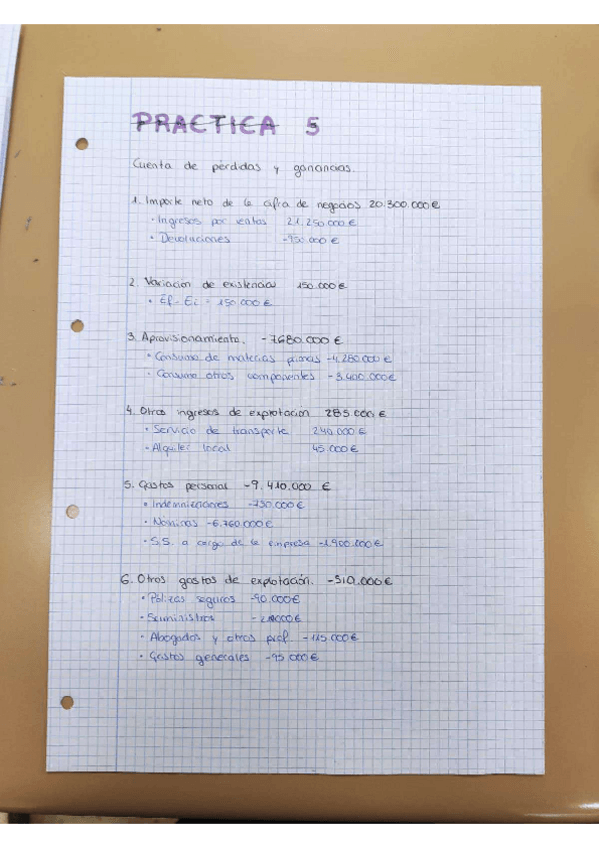 PRACTICA 5
Cuenta de pérdidas y ganancias.
1. Importe neto de la cifra de negocios 20.300.000€
• Ingresos por ventas 21.250.000€
• Devoluciones -950.000€
2. Variación de existencias 150.000€
• Ef - Ei = 150.000€
3. Aprovisionamiento. -7.680.000€
• Consumo de materias primas -4.280.000€
• Consumo otros componentes -3.400.000€
4. Otros ingresos de explotación 285.000€
• Servicio de transporte 240.000€
• Alquiler local 45.000€
5. Gastos personal -9.410.000€
• Indemnizaciones -750.000€
• Nóminas -6.760.000€
• S.S. a cargo de la empresa -1.900.000€
6. Otros gastos de explotación. -510.000€
• Pólizas seguros -90.000€
• Suministros
• Abogados y otros prof. -115.000€
• Gastos generales -95.000€